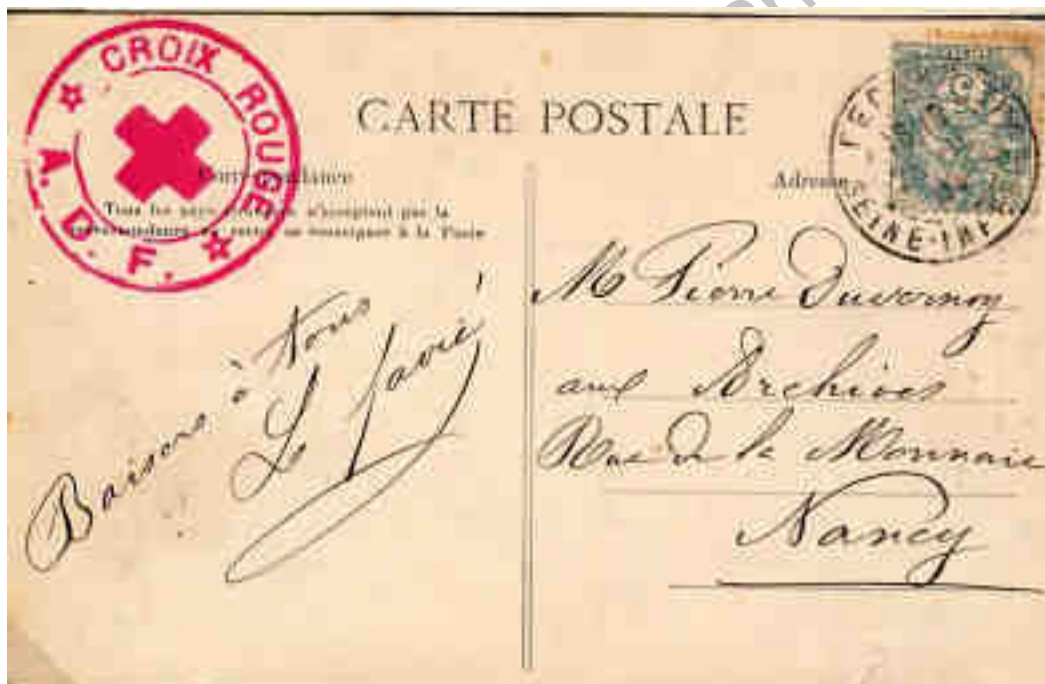 CROIX ROUGE
A. D. F.
CARTE POSTALE
Correspondance
Tous les pays étrangers n'acceptent pas la
correspondance au recto, se renseigner à la Poste
Adresse
SEINE-INF
Baisers à tous
L Favié
M Pierre Duvernoy
aux Archives
Rue de la Monnaie
Nancy